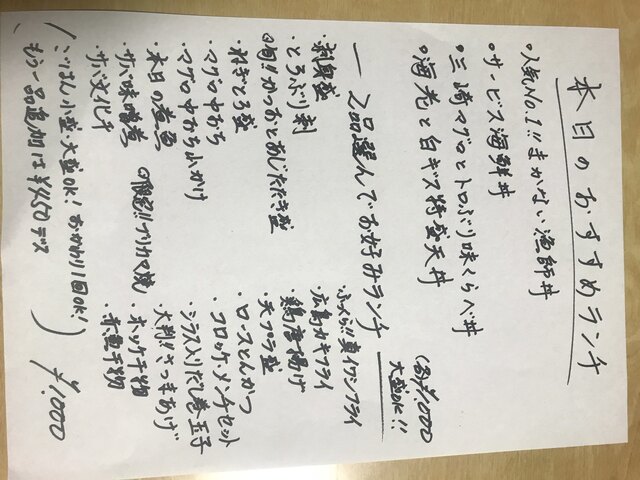 本日のおすすめランチ
・人気No.1!!まかない漁師丼
・サービス海鮮丼
・三崎マグロとトロぶり味くらべ丼
・海老と白ギス特盛天丼
(各¥1,000
大盛OK!!
2品選んでお好みランチ
・刺身盛
・とろぶり刺
・旬!!かつおとあじたたき盛
・ねぎとろ盛
・マグロ中おち
・マグロ中おち山かけ
・本日の煮魚
・サバ味噌煮
・サバ文化干
・限定!!ブリカマ焼
・ふっくら!!真イワシフライ
・広島カキフライ
・鶏唐揚げ
・天プラ盛
・ロースとんかつ
・コロッケ・メンチセット
・シラス入りだし巻玉子
・大判!!さつまあげ
・ホッケ干物
・赤魚干物
(ごはん小盛、大盛OK! おかわり1回OK!
もう一品追加は¥450デス) ¥1,000